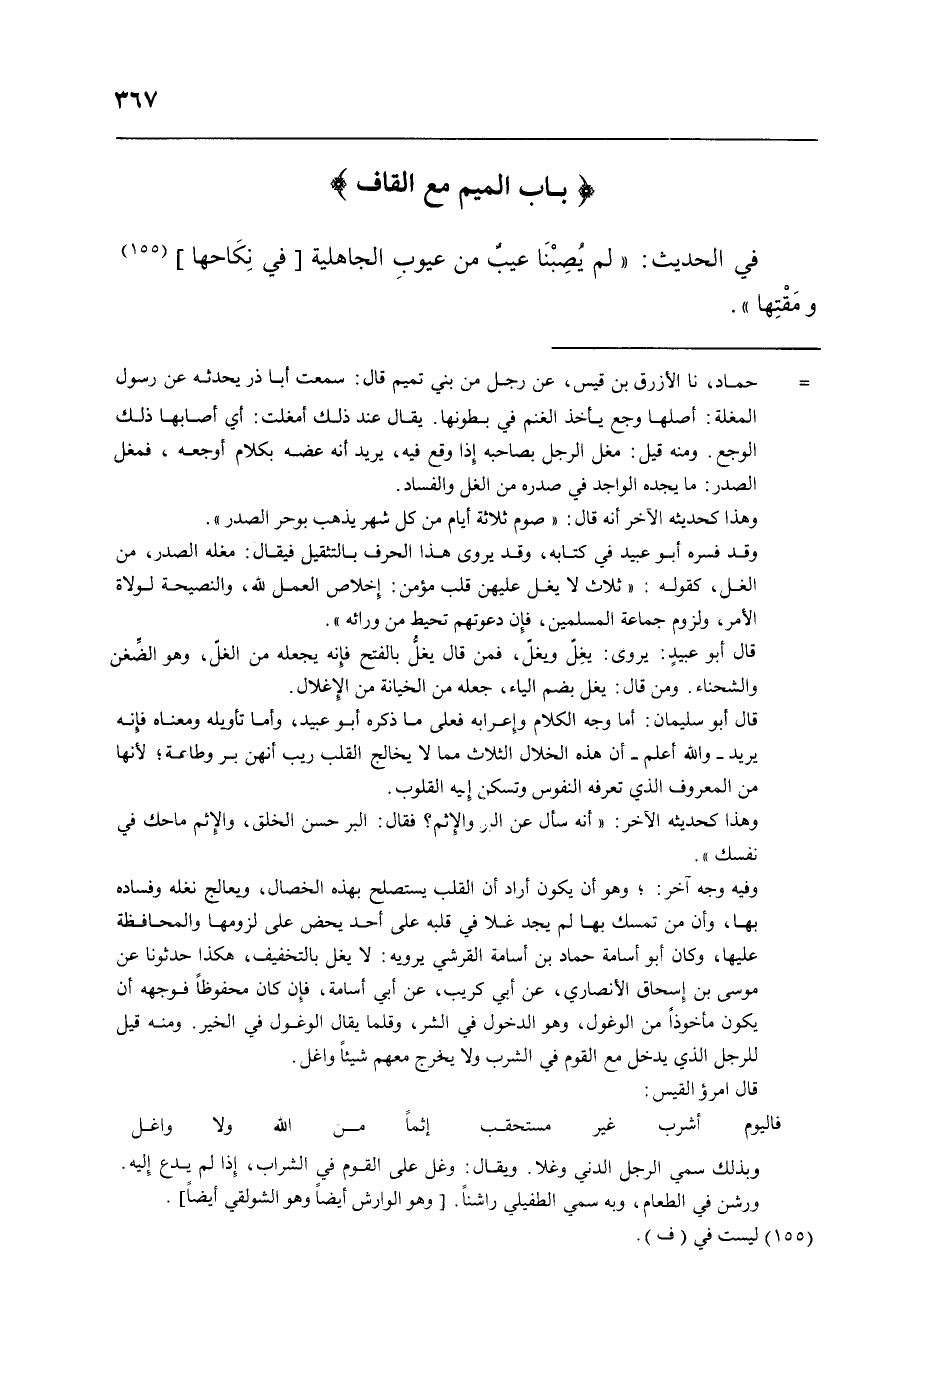 ٣٦٧
﴿ بـاب الميم مع القاف ﴾
في الحديث: « لم يُصِبْنَا عيبٌ من عيوبِ الجاهلية [ في نِكَاحها ] (١٥٥)
و مَقْتِها ».
= حمـاد، نا الأزرق بن قيس، عن رجـل من بني تميم قال: سمعت أبـا ذر يحدثـه عن رسول
المغلة: أصلهـا وجع يـأخذ الغنم في بـطونها. يقـال عند ذلـك أمغلت: أي أصـابهـا ذلـك
الوجع. ومنه قيل: مغل الرجل بصاحبه إذا وقع فيه، يريد أنه عضـه بكلام أوجعـه ، فمغل
الصدر: ما يجده الواجد في صدره من الغل والفساد.
وهذا كحديثه الآخر أنه قال: « صوم ثلاثة أيام من كل شهر يذهب بوحر الصدر ».
وقـد فسره أبـو عبيد في كتـابه، وقـد يروى هـذا الحرف بـالتثقيل فيقـال: مغله الصدر، من
الغـل، كقولـه : « ثلاث لا يغـل عليهن قلب مؤمن: إخلاص العمـل لله، والنصيحـة لـولاة
الأمر، ولزوم جماعة المسلمين، فإن دعوتهم تحيط من ورائه ».
قال أبو عبيدٍ: يروى: يغِلّ ويغلّ، فمن قال يغلُّ بالفتح فإنه يجعله من الغلّ، وهو الضِّغن
والشحناء. ومن قال: يغل بضم الياء، جعله من الخيانة من الإغلال.
قال أبو سليمان: أما وجه الكلام وإعـرابه فعلى مـا ذكره أبـو عبيد، وأمـا تأويله ومعنـاه فإنـه
يريد ـ والله أعلم ـ أن هذه الخلال الثلاث مما لا يخالج القلب ريب أنهن بـر وطاعـة؛ لأنها
من المعروف الذي تعرفه النفوس وتسكن إليه القلوب.
وهذا كحديثه الآخر: « أنه سأل عن البر والإثم؟ فقال: البر حسن الخلق، والإثم ماحك في
نفسك ».
وفيه وجه آخر: ؛ وهو أن يكون أراد أن القلب يستصلح بهذه الخصال، ويعالج نغله وفساده
بهـا، وأن من تمسك بهـا لم يجد غـلا في قلبه على أحـد يحض على لزومهـا والمحـافـظة
عليها، وكان أبو أسامة حماد بن أسامة القرشي يرويه: لا يغل بالتخفيف، هكذا حدثونا عن
موسى بن إسحاق الأنصاري، عن أبي كريب، عن أبي أسامة، فإن كان محفوظاً فـوجهه أن
يكون مأخوذاً من الوغول، وهو الدخول في الشر، وقلما يقال الوغـول في الخير. ومنـه قيل
للرجل الذي يدخل مع القوم في الشرب ولا يخرج معهم شيئاً واغل.
قال امرؤ القيس:
فاليوم أشرب غير مستحقـب إثماً مـن الله ولا واغـل
وبذلك سمي الرجل الدني وغلا. ويقـال: وغل على القـوم في الشراب، إذا لم يـدع إليه.
ورشن في الطعام، وبه سمي الطفيلي راشناً. [ وهو الوارش أيضاً وهو الشولقي أيضاً] .
(١٥٥) ليست في ( ف ).